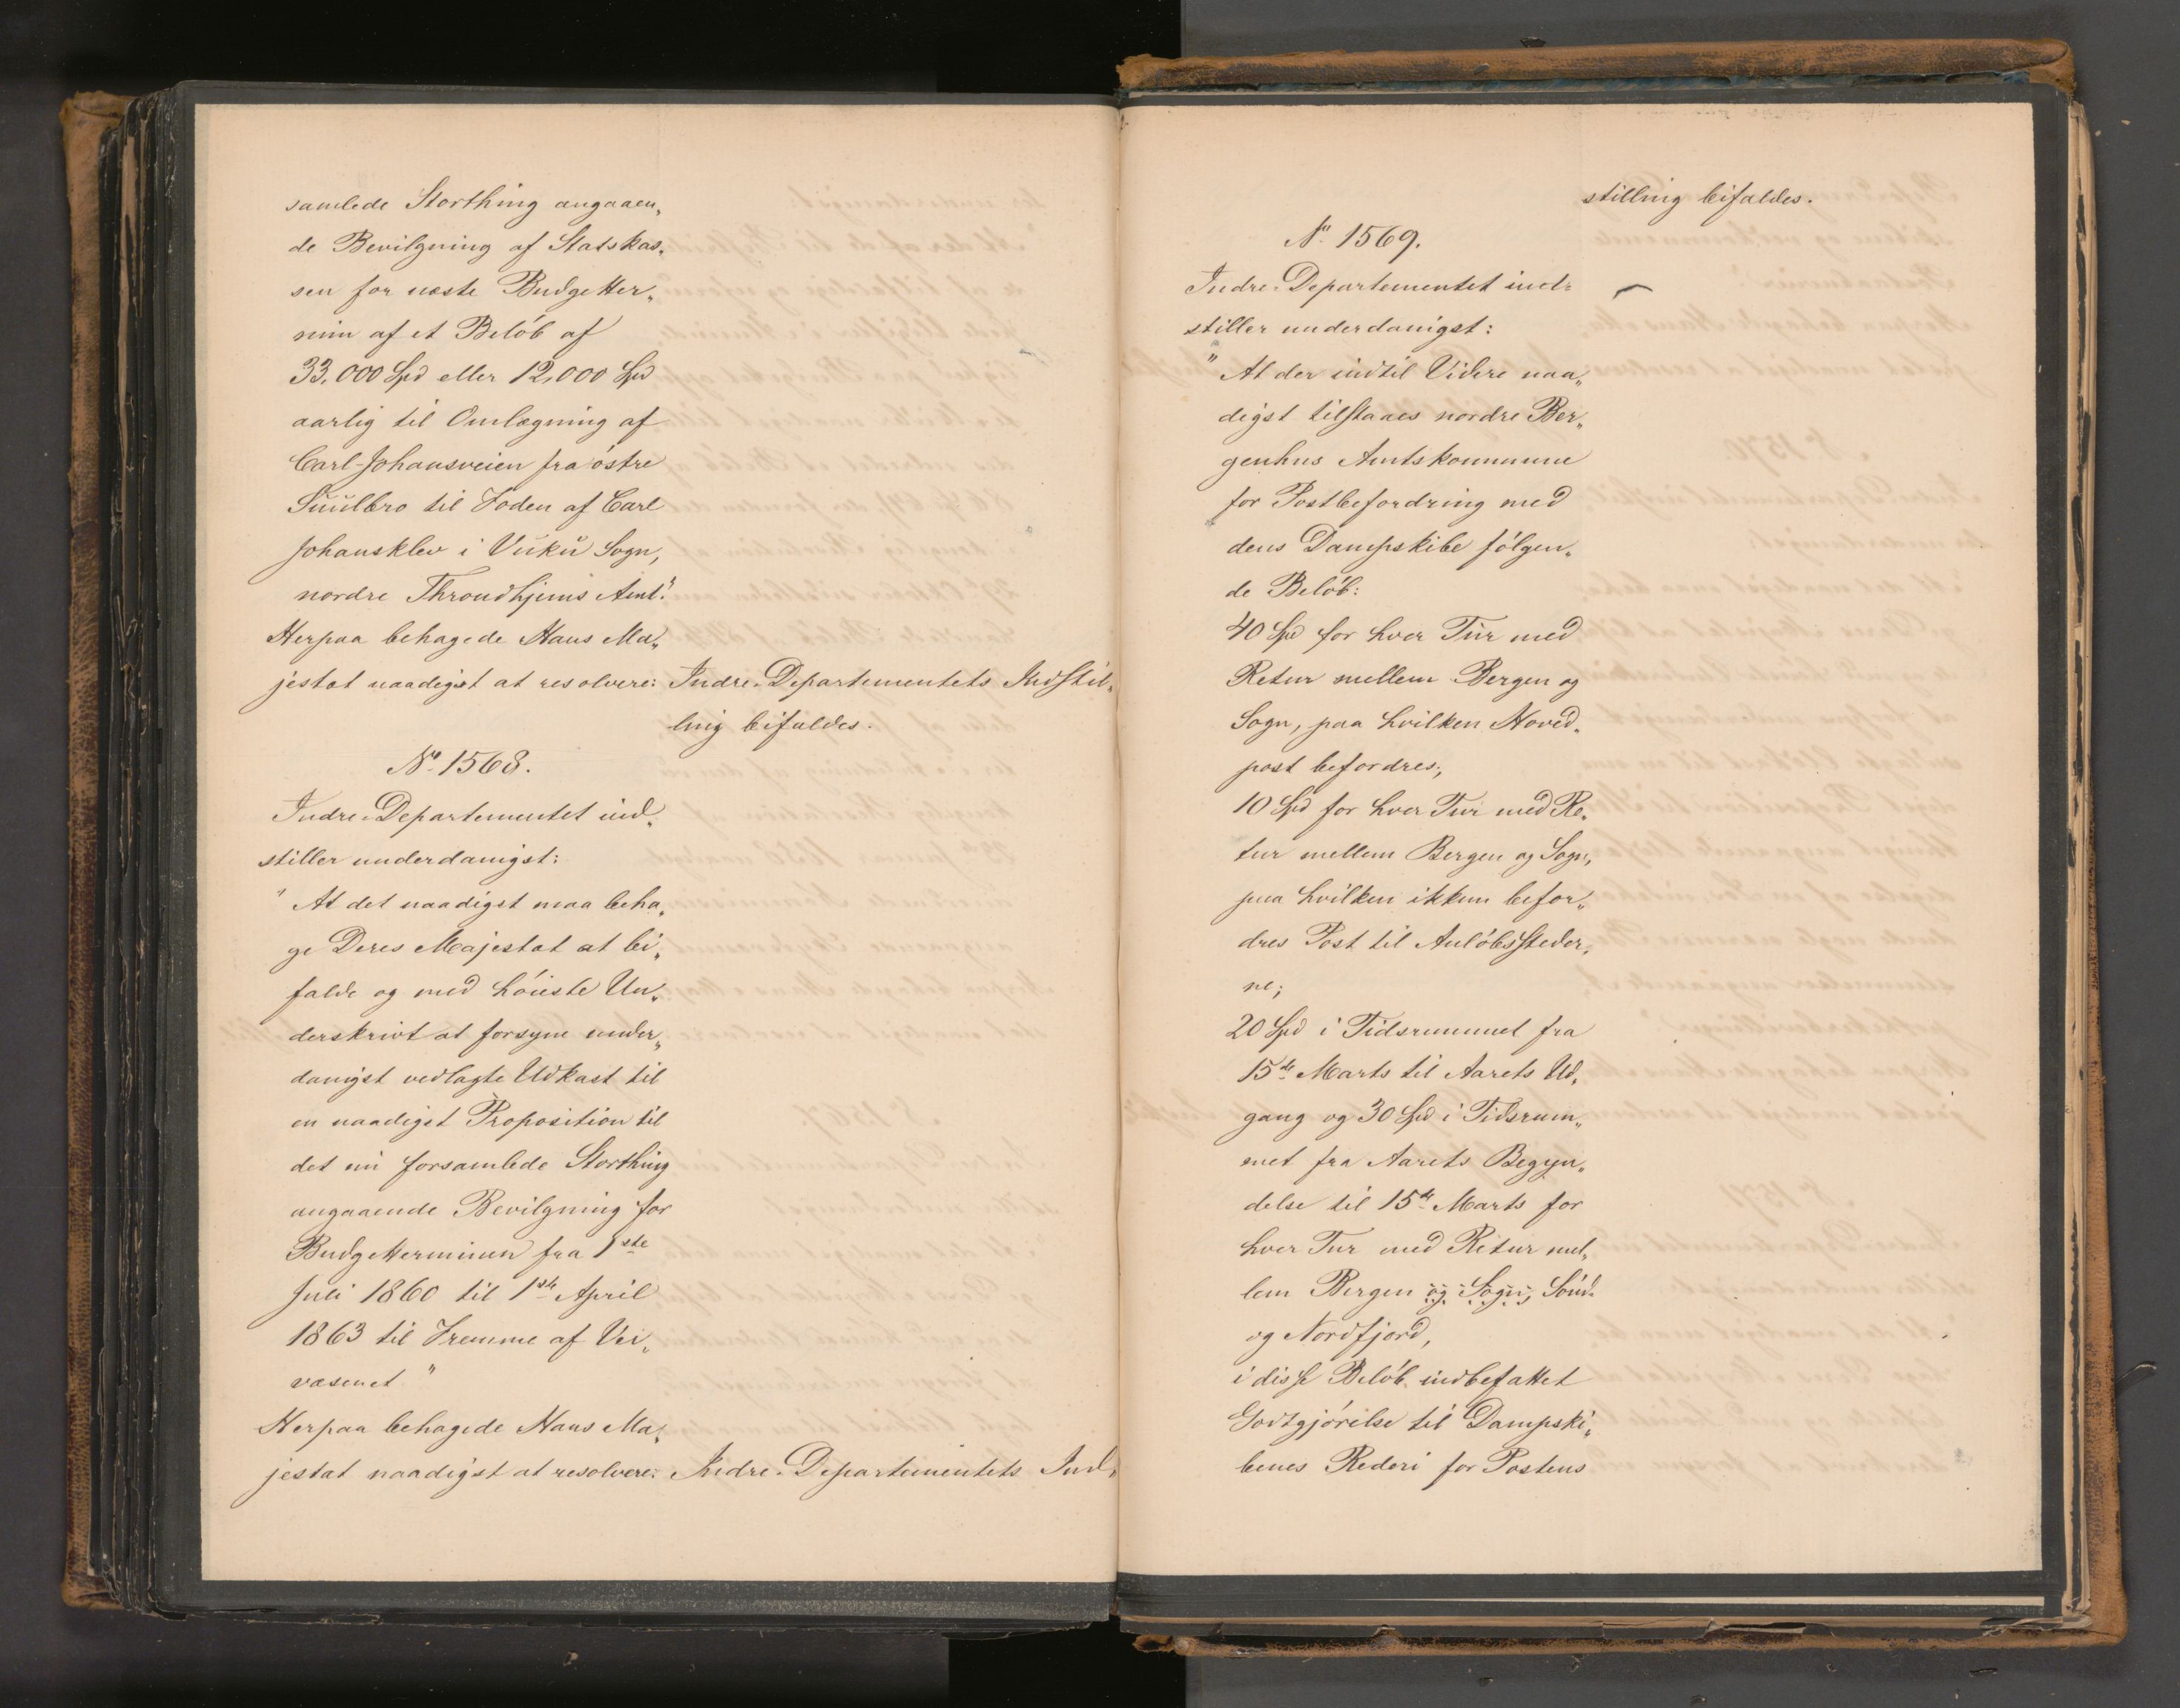 samlede Storthing angaaen„
de Bevilgning af Statskas„
sen for næste Budgetter„
min af et Beløb af
33,000 Spd eller 12,000 Spd
aarlig til Omlægning af
Carl-Johansveien fra østre
Suulbro til Foden af Carl
Johansklev i Vuku Sogn,
nordre Throndhjems Amt."
Herpaa behagede Hans Ma„
jestæt naadigst at resolvere: Indre-Departementets Indstil„
ling bifaldes.
No. 1568.
Indre-Departementet ind„
stiller underdanigst:
"At det naadigst maa beha„
ge Deres Majestæt at bi„
falde og med høieste Un„
derskrivt at forsyne under„
danigst vedlagte Udkast til
en naadigst Proposition til
det nu forsamlede Storthing
angaaende Bevilgning for
Budgetterminen fra 1ste
Juli 1860 til 1ste April
1863 til Fremme af Vei„
væsenet."
Herpaa behagede Hans Ma„
jestæt naadigst at resolvere: Indre-Departementets Ind„
stilling bifaldes.
No. 1569.
Indre-Departementet ind-
stiller underdanigst:
"At der indtil Videre naa„
digst tilstaaes nordre Ber„
genhus Amtskommune
for Postbefordring med
dens Dampskibe følgen„
de Beløb:
40 Spd for hver Tur med
Retur mellem Bergen og
Sogn, paa hvilken Hoved„
post befordres;
10 Spd for hver Tur med Re„
tur mellem Bergen og Sogn,
paa hvilken ikkun befor„
dres Post til Anløbssteder„
ne;
20 Spd i Tidsrummet fra
15de Marts til Aarets Ud„
gang og 30 Spd i Tidsrum„
met fra Aarets Begyn„
delse til 15de Marts for
hver Tur med Retur mel„
lem Bergen og Sogn, Sönd-
og Nordfjord,
i disse Beløb indbefattet
Godtgjørelse til Dampski„
benes Rederi for Postens